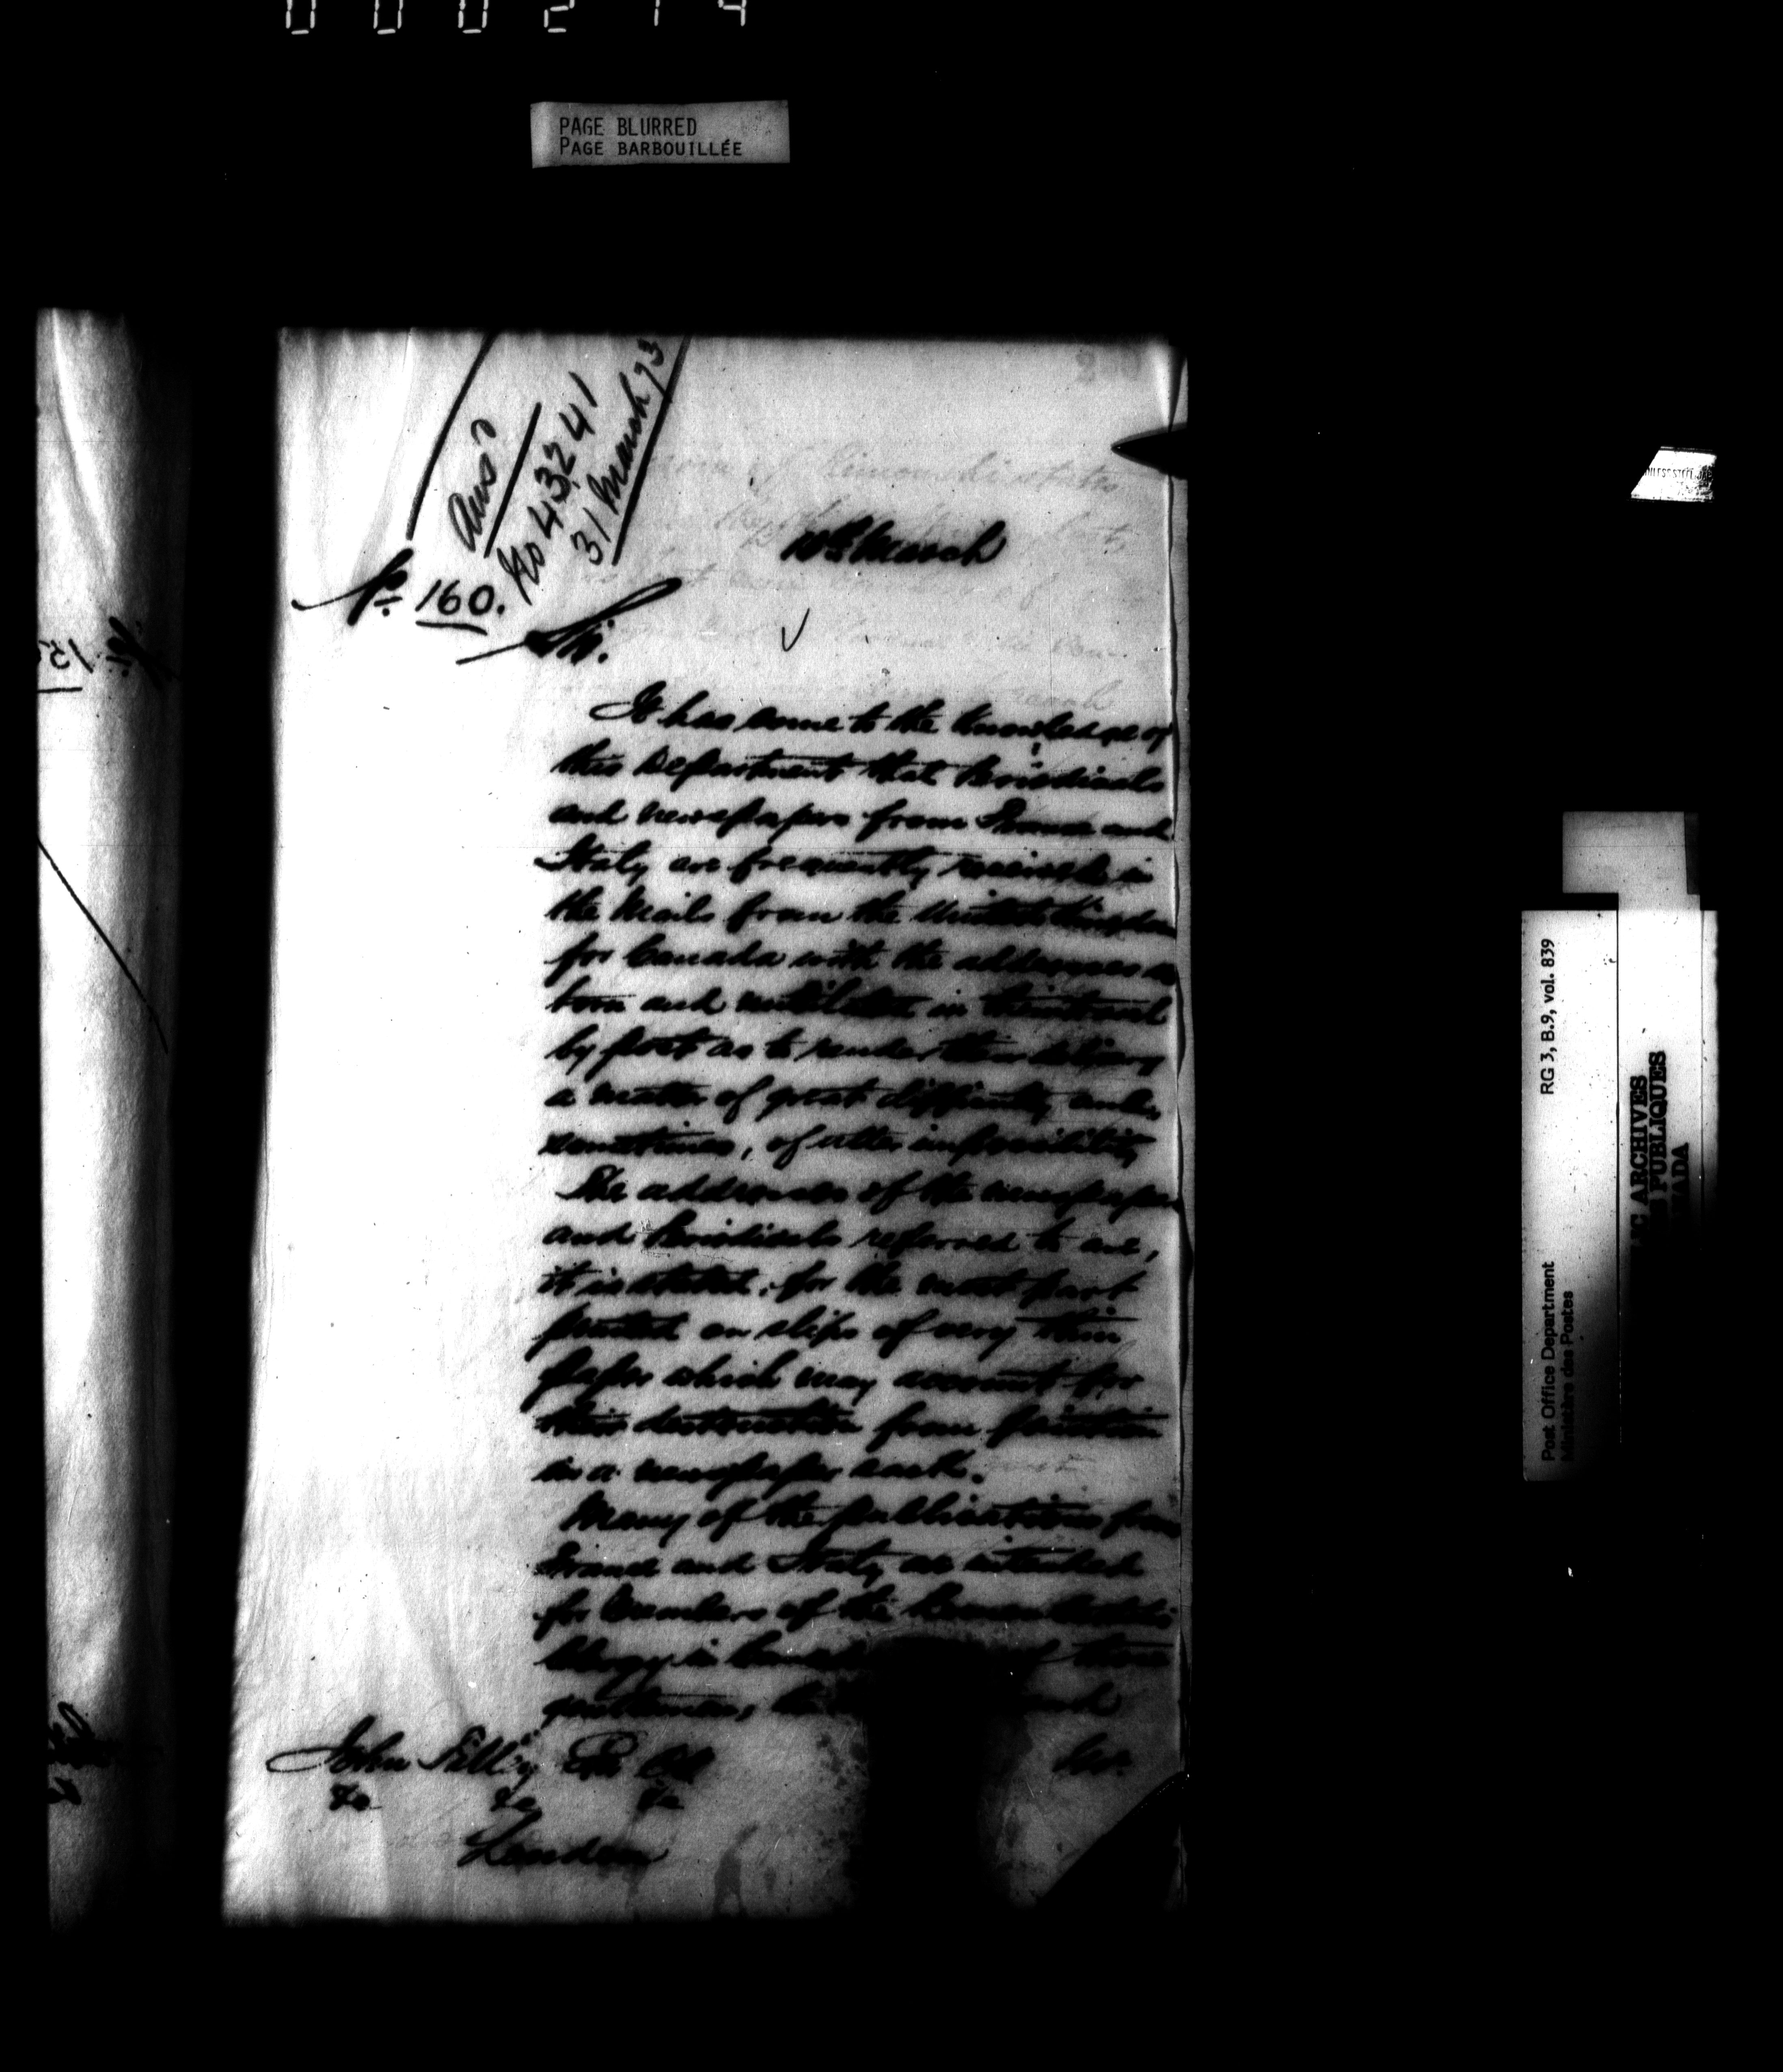 000214
PAGE BLURRED
PAGE BARBOUILLÉE
Ansd
No 43241
31 March 73
p. 160.
10th March
Sir.
It has come to the knowledge of
this Department that Periodicals
and newspapers from France and
Italy are frequently received in
the Mails from the United Kingdom
for Canada with the addresses so
torn and mutilated in
by post as to render their delivery
a matter of great difficulty and
sometimes, of utter impossibility
The addresses of the newspapers
and Periodicals referred to are,
it is stated, for the most part
printed on slips of very thin
paper which may account for
their destruction from friction
in a newspaper sack.
Many of the publications from
France and Italy are intended
for Members of the Roman Catholic
Clergy in
gentlemen,
John Tilley Esq CB
&c &c &c
London
RG 3, B.9, vol. 839
Post Office Department
Ministère des Postes
C ARCHIVES
PUBLIQUES
ADA